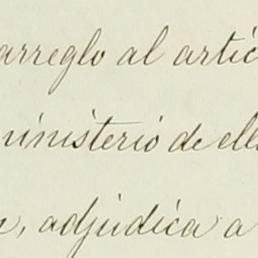 arreglo al artíc
ministerio de ell
n, adjudica a